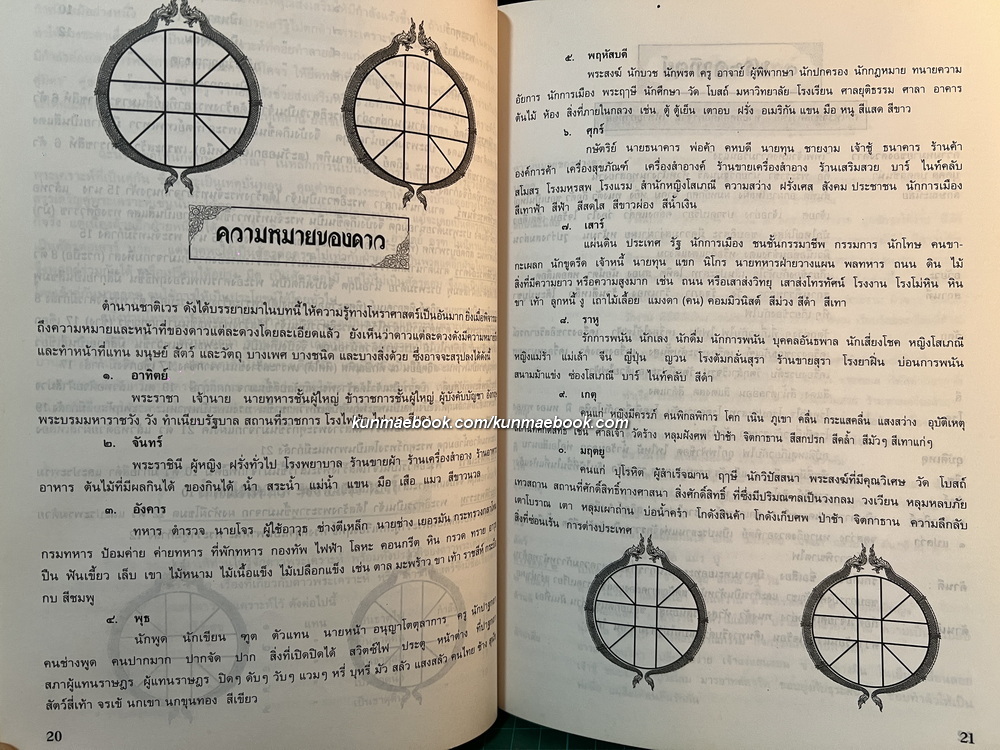 ความหมายของดาว
ตำนานชาติเวร ดังได้บรรยายมาในบทนี้ ให้ความรู้ทางโหราศาสตร์เป็นอันมาก ยิ่งเมื่อพิจารณา
ถึงความหมายและหน้าที่ของดาวแต่ละดวงโดยละเอียดแล้ว ยังเห็นว่าดาวแต่ละดวงดังมีความหมาย
และทำหน้าที่แทน มนุษย์ สัตว์ และวัตถุ บางเพศ บางชนิด และบางสิ่งด้วย ซึ่งอาจจะสรุปลงได้ดังนี้
๑. อาทิตย์
พระราชา เจ้านาย นายทหารชั้นผู้ใหญ่ ข้าราชการชั้นผู้ใหญ่ ผู้บังคับบัญชา
พระบรมมหาราชวัง วัง ทำเนียบรัฐบาล สถานที่ราชการ โรงไฟฟ้า
๒. จันทร์
พระราชินี ผู้หญิง ฝรั่งทั่วไป โรงพยาบาล ร้านขายผ้า ร้านเครื่องสำอาง ร้านอาหาร
อาหาร ต้นไม้ที่มีผลกินได้ ของกินได้ น้ำ สระน้ำ แม่น้ำ แขน มือ เสือ แมว สีขาวนวล
๓. อังคาร
ทหาร ตำรวจ นายโจร ผู้ใช้อาวุธ ช่างตีเหล็ก นายช่าง เยอรมัน กระทรวงกลาโหม
กรมทหาร ป้อมค่าย ค่ายทหาร ที่พักทหาร กองทัพ ไฟฟ้า โลหะ คอนกรีต หิน กรวด ทราย
ปืน ฟันเขี้ยว เล็บ เขา ไม้หนาม ไม้เนื้อแข็ง ไม้เปลือกแข็ง เช่น ตาล มะพร้าว ขา เท้า ราชสีห์
กบ สีชมพู
๔. พุธ
นักพูด นักเขียน ทูต ตัวแทน นายหน้า อนุญาโตตุลาการ ครู
คนช่างพูด คนปากมาก ปากจัด ปาก สิ่งที่เปิดปิดได้ สวิตช์ไฟ ประตู หน้าต่าง
สภาผู้แทนราษฎร ผู้แทนราษฎร ปิดๆ ดับๆ วับๆ แวมๆ หรี่ บุหรี่ มัว สลัว แสงสลัว คนไทย ช้าง
สัตว์สี่เท้า จรเข้ นกเขา นกขุนทอง สีเขียว
20
๕. พฤหัสบดี
พระสงฆ์ นักบวช นักพรต ครู อาจารย์ ผู้พิพากษา นักปกครอง นักกฎหมาย ทนายความ
อัยการ นักการเมือง พระฤาษี นักศึกษา วัด โบสถ์ มหาวิทยาลัย โรงเรียน ศาลยุติธรรม ศาลา อาคาร
ต้นไม้ ห้อง สิ่งที่ภายในกลวง เช่น ตู้ ตู้เย็น เตาอบ ฝรั่ง อเมริกัน แขน มือ หนู สีแสด สีขาว
๖. ศุกร์
กษัตริย์ นายธนาคาร พ่อค้า คหบดี นายทุน ชายงาม เจ้าชู้ ธนาคาร ร้านค้า
องค์การค้า เครื่องสุขภัณฑ์ เครื่องสำอางค์ ร้านขายเครื่องสำอาง ร้านเสริมสวย บาร์ ไนท์คลับ
สโมสร โรงมหรสพ โรงแรม สำนักหญิงโสเภณี ความสว่าง ฝรั่งเศส สังคม ประชาชน นักการเมือง
สีเทาฟ้า สีฟ้า สีสดใส สีขาวผ่อง สีน้ำเงิน
๗. เสาร์
แผ่นดิน ประเทศ รัฐ นักการเมือง ชนชั้นกรรมาชีพ กรรมการ นักโทษ คนขา-
กะเผลก นักขูดรีด เจ้าหนี้ นายทุน แขก นิโกร นายทหารฝ่ายวางแผน พลทหาร ถนน ดิน ไม้
สิ่งที่มีความยาว หรือความสูงมาก เช่น ถนน หรือเสาส่งวิทยุ เสาส่งโทรทัศน์ โรงงาน โรงโม่หิน หิน
ขา เท้า ลูกหนี้ งู เถาไม้เลื้อย แมงดา (คน) คอมมิวนิสต์ สีม่วง สีดำ สีเทา
๘. ราหู
รักการพนัน นักเลง นักดื่ม นักการพนัน บุคคลอันธพาล นักเสี่ยงโชค หญิงโสเภณี
หญิงแม่ร้า แม่เล้า จีน ญี่ปุ่น ญวน โรงต้มกลั่นสุรา ร้านขายสุรา โรงยาฝิ่น บ่อนการพนัน
สนามม้าแข่ง ซ่องโสเภณี บาร์ ไนท์คลับ สีดำ
๙. เกตุ
คนแก่ หญิงมีครรภ์ คนพิกลพิการ โคก เนิน ภูเขา คลื่น กระแสคลื่น แสงสว่าง อุบัติเหตุ
เช่น ศาลเจ้า วัดร้าง หลุมฝังศพ ป่าช้า จิตกาธาน สีสกปรก สีคล้ำ สีมัวๆ สีเทาแก่ๆ
๐. มฤตยู
คนแก่ ปุโรหิต ผู้สำเร็จฌาน ฤาษี นักวิปัสสนา พระสงฆ์ที่มีคุณวิเศษ วัด โบสถ์
เทวสถาน สถานที่ศักดิ์สิทธิ์ทางศาสนา สิ่งศักดิ์สิทธิ์ ที่ซึ่งมีปริมณฑลเป็นวงกลม วงเวียน หลุมหลบภัย
เตาโบราณ เตา หลุมเผาถ่าน บ่อน้ำคร่ำ โกดังสินค้า โกดังเก็บศพ ป่าช้า จิตกาธาน ความลึกลับ
สิ่งที่ซ่อนเร้น การต่างประเทศ
21
kunmaebook.com/kunmaebook.com